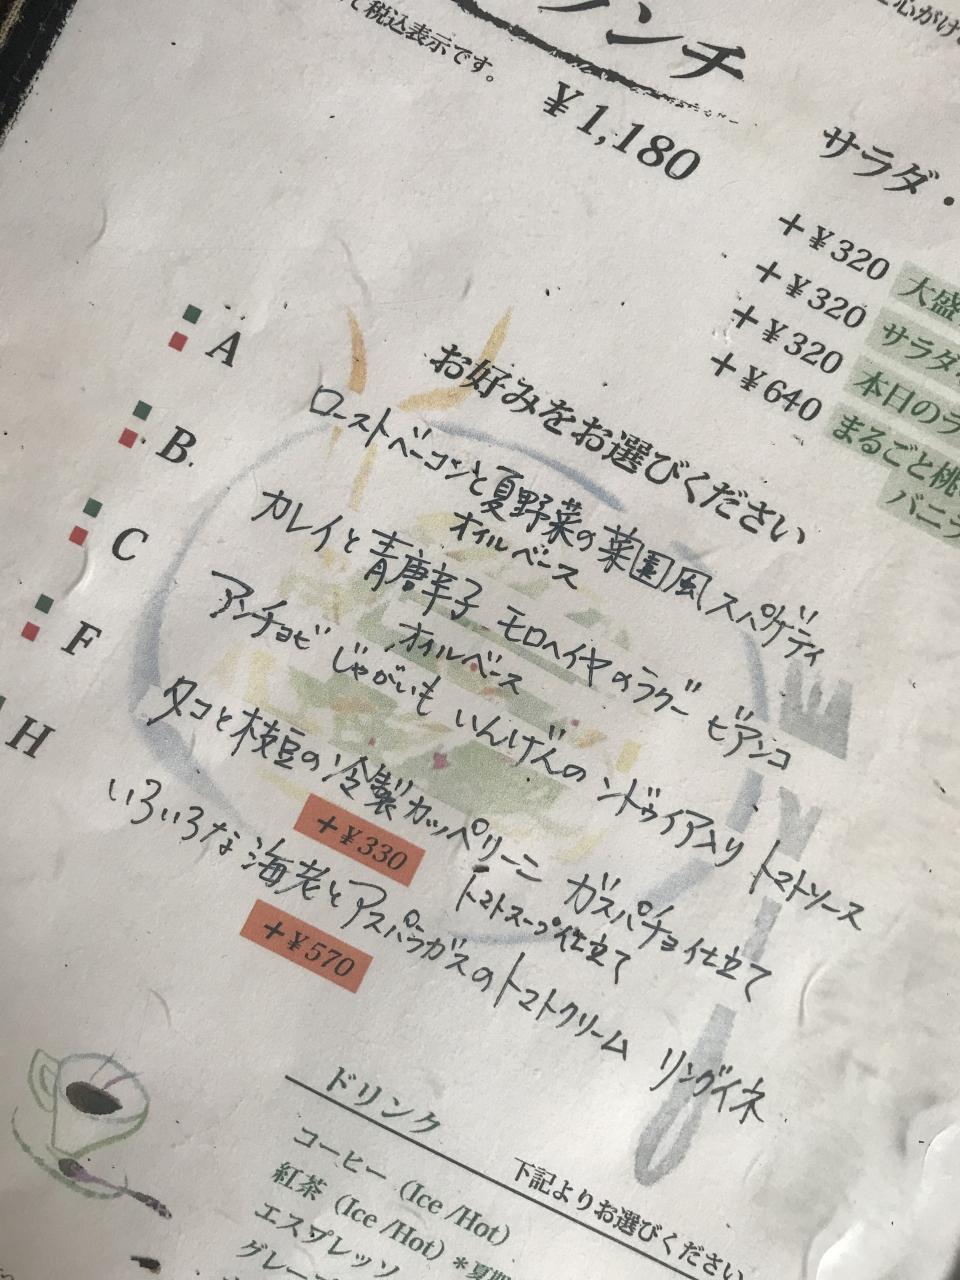 ランチ
税込表示です。
¥1,180
サラダ・
+¥320 大盛
+¥320 サラダ
+¥320 本日の
+¥640 まるごと桃
バニラ
お好みをお選びください
A ローストベーコンと夏野菜の菜園風スパゲティ
オイルベース
B. カレイと青唐辛子 モロヘイヤのラグー ビアンコ
オイルベース
C アンチョビ じゃがいも いんげんの ンドゥイア入り トマトソース
F タコと枝豆の冷製カッペリーニ ガスパチョ仕立て
+¥330 トマトスープ仕立て
H いろいろな海老とアスパラガスのトマトクリーム リングイネ
+¥570
ドリンク
下記よりお選びください
コーヒー (Ice /Hot)
紅茶 (Ice /Hot) *夏期
エスプレッソ
グレー